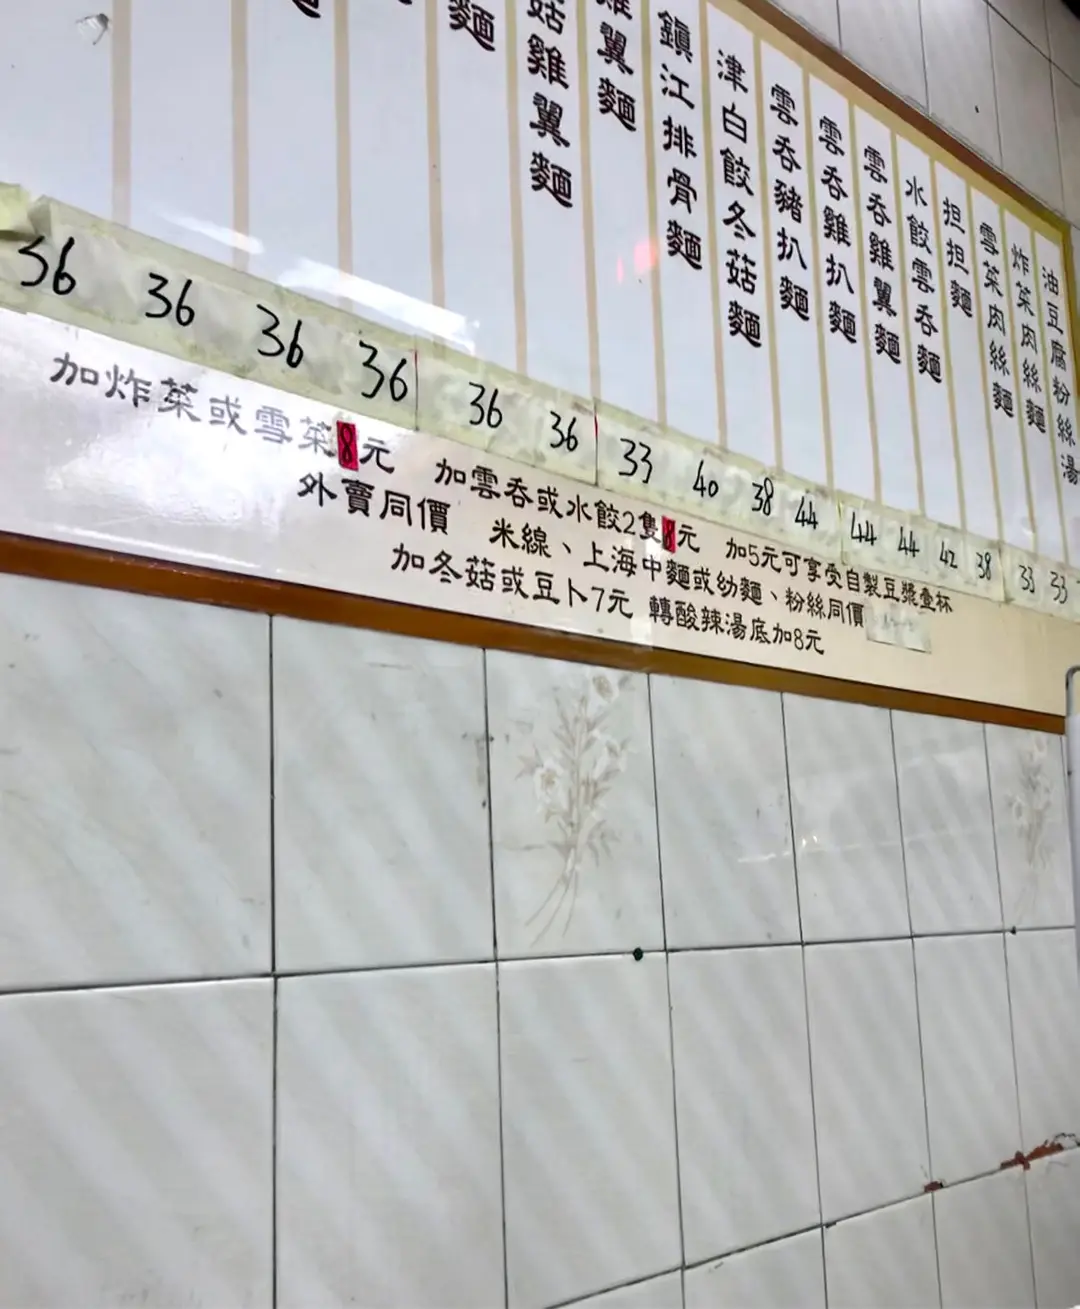 油豆腐粉絲湯
炸菜肉絲麵
雪菜肉絲麵
担担麵
水餃雲吞麵
雲吞雞翼麵
雲吞雞扒麵
雲吞豬扒麵
津白餃冬菇麵
鎮江排骨麵
雞翼麵
菇雞翼麵
麵
36 36 36 36 36 36 33 40 38 44 44 44 42 38 33 33
加炸菜或雪菜8元 加雲吞或水餃2隻8元 加5元可享受自製豆漿壹杯
外賣同價 米線、上海中麵或幼麵、粉絲同價
加冬菇或豆卜7元 轉酸辣湯底加8元